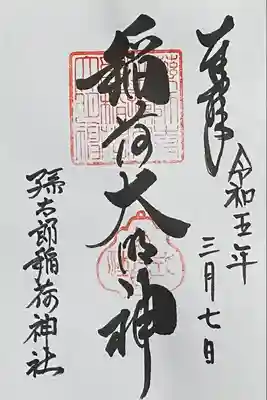 奉拝
令和五年
三月七日
稲荷大明神
孫太郎稲荷神社